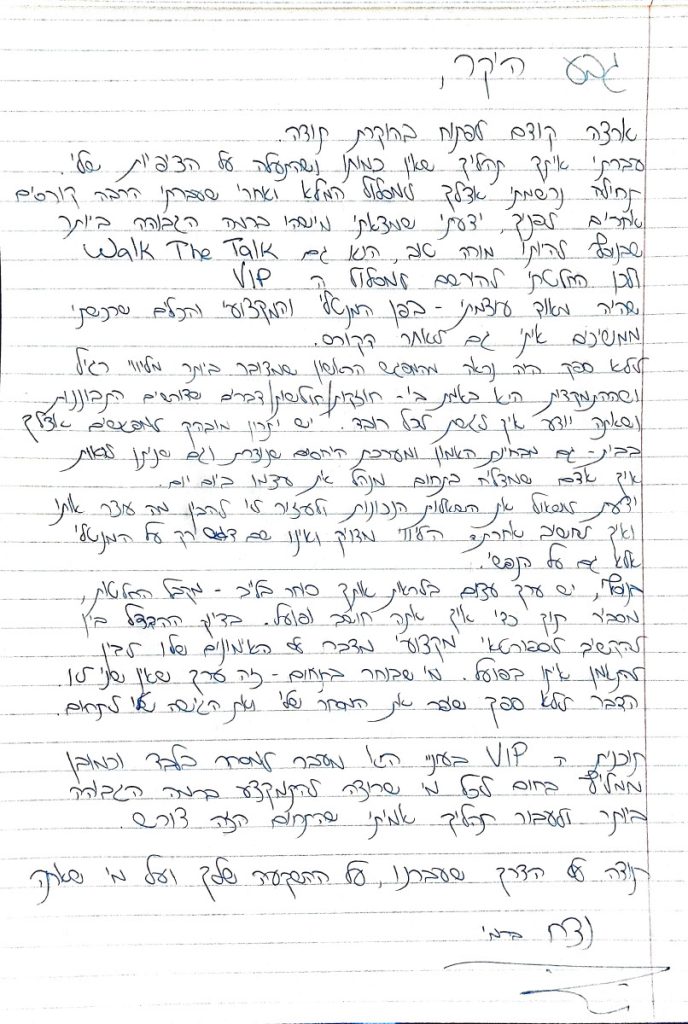 גבע היקר,
ארצה קודם לפתוח בהוקרת תודה.
עברתי איתך תהליך שאין כמותו ושהתעלה על הציפיות שלי.
תחילה נרשמתי אצלך למסלול המלא ואחרי שעברתי הרבה קורסים
אחרים לפניך, ידעתי שמצאתי מישהו ברמה הגבוהה ביותר
שבנוסף להיותו מורה טוב, הוא גם Walk The Talk
ולכן החלטתי להירשם למסלול ה VIP
שהיה מאוד עוצמתי - בפן המנטלי והמקצועי והכלים שרכשתי
ממשיכים איתי גם לאחר הקורס.
ללא ספק היה נראה מהמפגש הראשון שמדובר ביותר מליווי רגיל
ושההתמקדות היא באמת ב- חוזקות/חולשות/דברים שדורשים התבוננות
ושאתה יודע איך לגשת לכל רובד. יש יתרון מובהק למפגשים אצלך
בבית - גם מבחינת האמון ומערכת היחסים שנוצרת וגם שניתן לראות
איך אדם שמצליח בתחום מנהל את עצמו ביום יום.
ידעת לשאול את השאלות הנכונות ולעזור לי להבין מה עוצר אותי
ואיך לחשוב אחרת. הליווי מדויק ואינו שם דגש רק על המנטלי
אלא גם על הנפשי.
בנוסף, יש ערך עצום בלראות אותך סוחר בלייב - מקבל החלטות,
מסביר תוך כדי איך אתה חושב ופועל. בדיוק ההבדל בין
להקשיב לספורטאי מקצועי מדבר על האימונים שלו לבין
להתאמן איתו בפועל. מי שבוחר בתחום - זה ערך שאין שני לו.
הדבר ללא ספק שיפר את המסחר שלי ואת הגישה שלי לתחום.
תוכנית ה VIP בעיני היא מעבר למסחר בלבד וכמובן
ממליץ בחום לכל מי שרוצה להתמקצע ברמה הגבוהה
ביותר ולעבור תהליך אמיתי שהתחום הזה דורש.
תודה על הדרך שעברנו, על ההשקעה שלך ועל מי שאתה
נצח ברמי